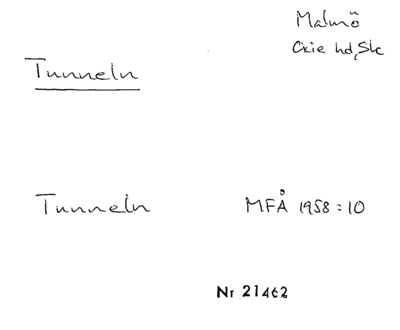 Malmö
Oxie hd, Sk
Tunneln
Tunneln MFÅ 1958:10
Nr 21462